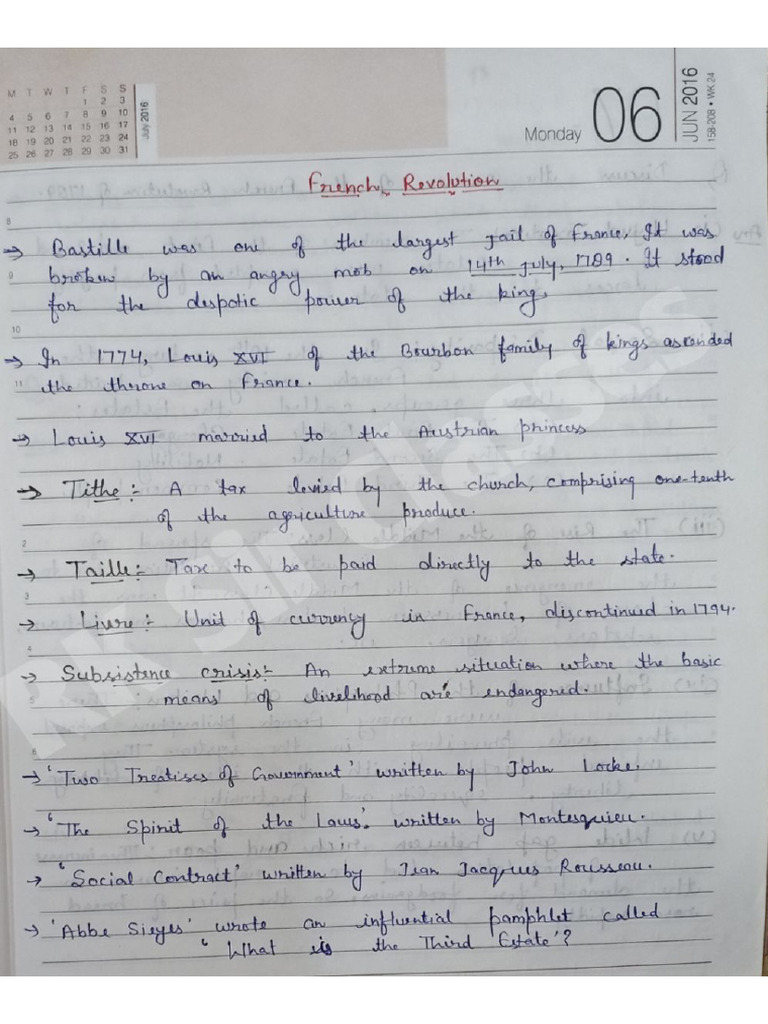 M T W T F S S
1 2 3
4 5 6 7 8 9 10
11 12 13 14 15 16 17
18 19 20 21 22 23 24
25 26 27 28 29 30 31
July 2016
Monday 06
JUN 2016
158-208 • WK 24
French Revolution
8
→ Bastille was one of the largest jail of France. It was
9 broken by an angry mob on 14th July, 1789. It stood
for the despotic power of the king.
10
→ In 1774, Louis XVI of the Bourbon family of kings ascended
11 the throne on France.
→ Louis XVI married to the Austrian princess
→ Tithe :- A tax levied by the church, comprising one-tenth
of the agriculture produce.
2
→ Taille :- Tax to be paid directly to the state.
3
→ Livre :- Unit of currency in France, discontinued in 1794.
4
→ Subsistence crisis :- An extreme situation where the basic
5 means of livelihood are endangered.
6
→ 'Two Treatises of Government' written by John Locke.
→ 'The Spirit of the Laws'. written by Montesquieu.
→ 'Social Contract' written by Jean Jacques Rousseau.
→ 'Abbe Sieyes' wrote an influential pamphlet called
'What is the Third Estate'?
RK Sir Classes